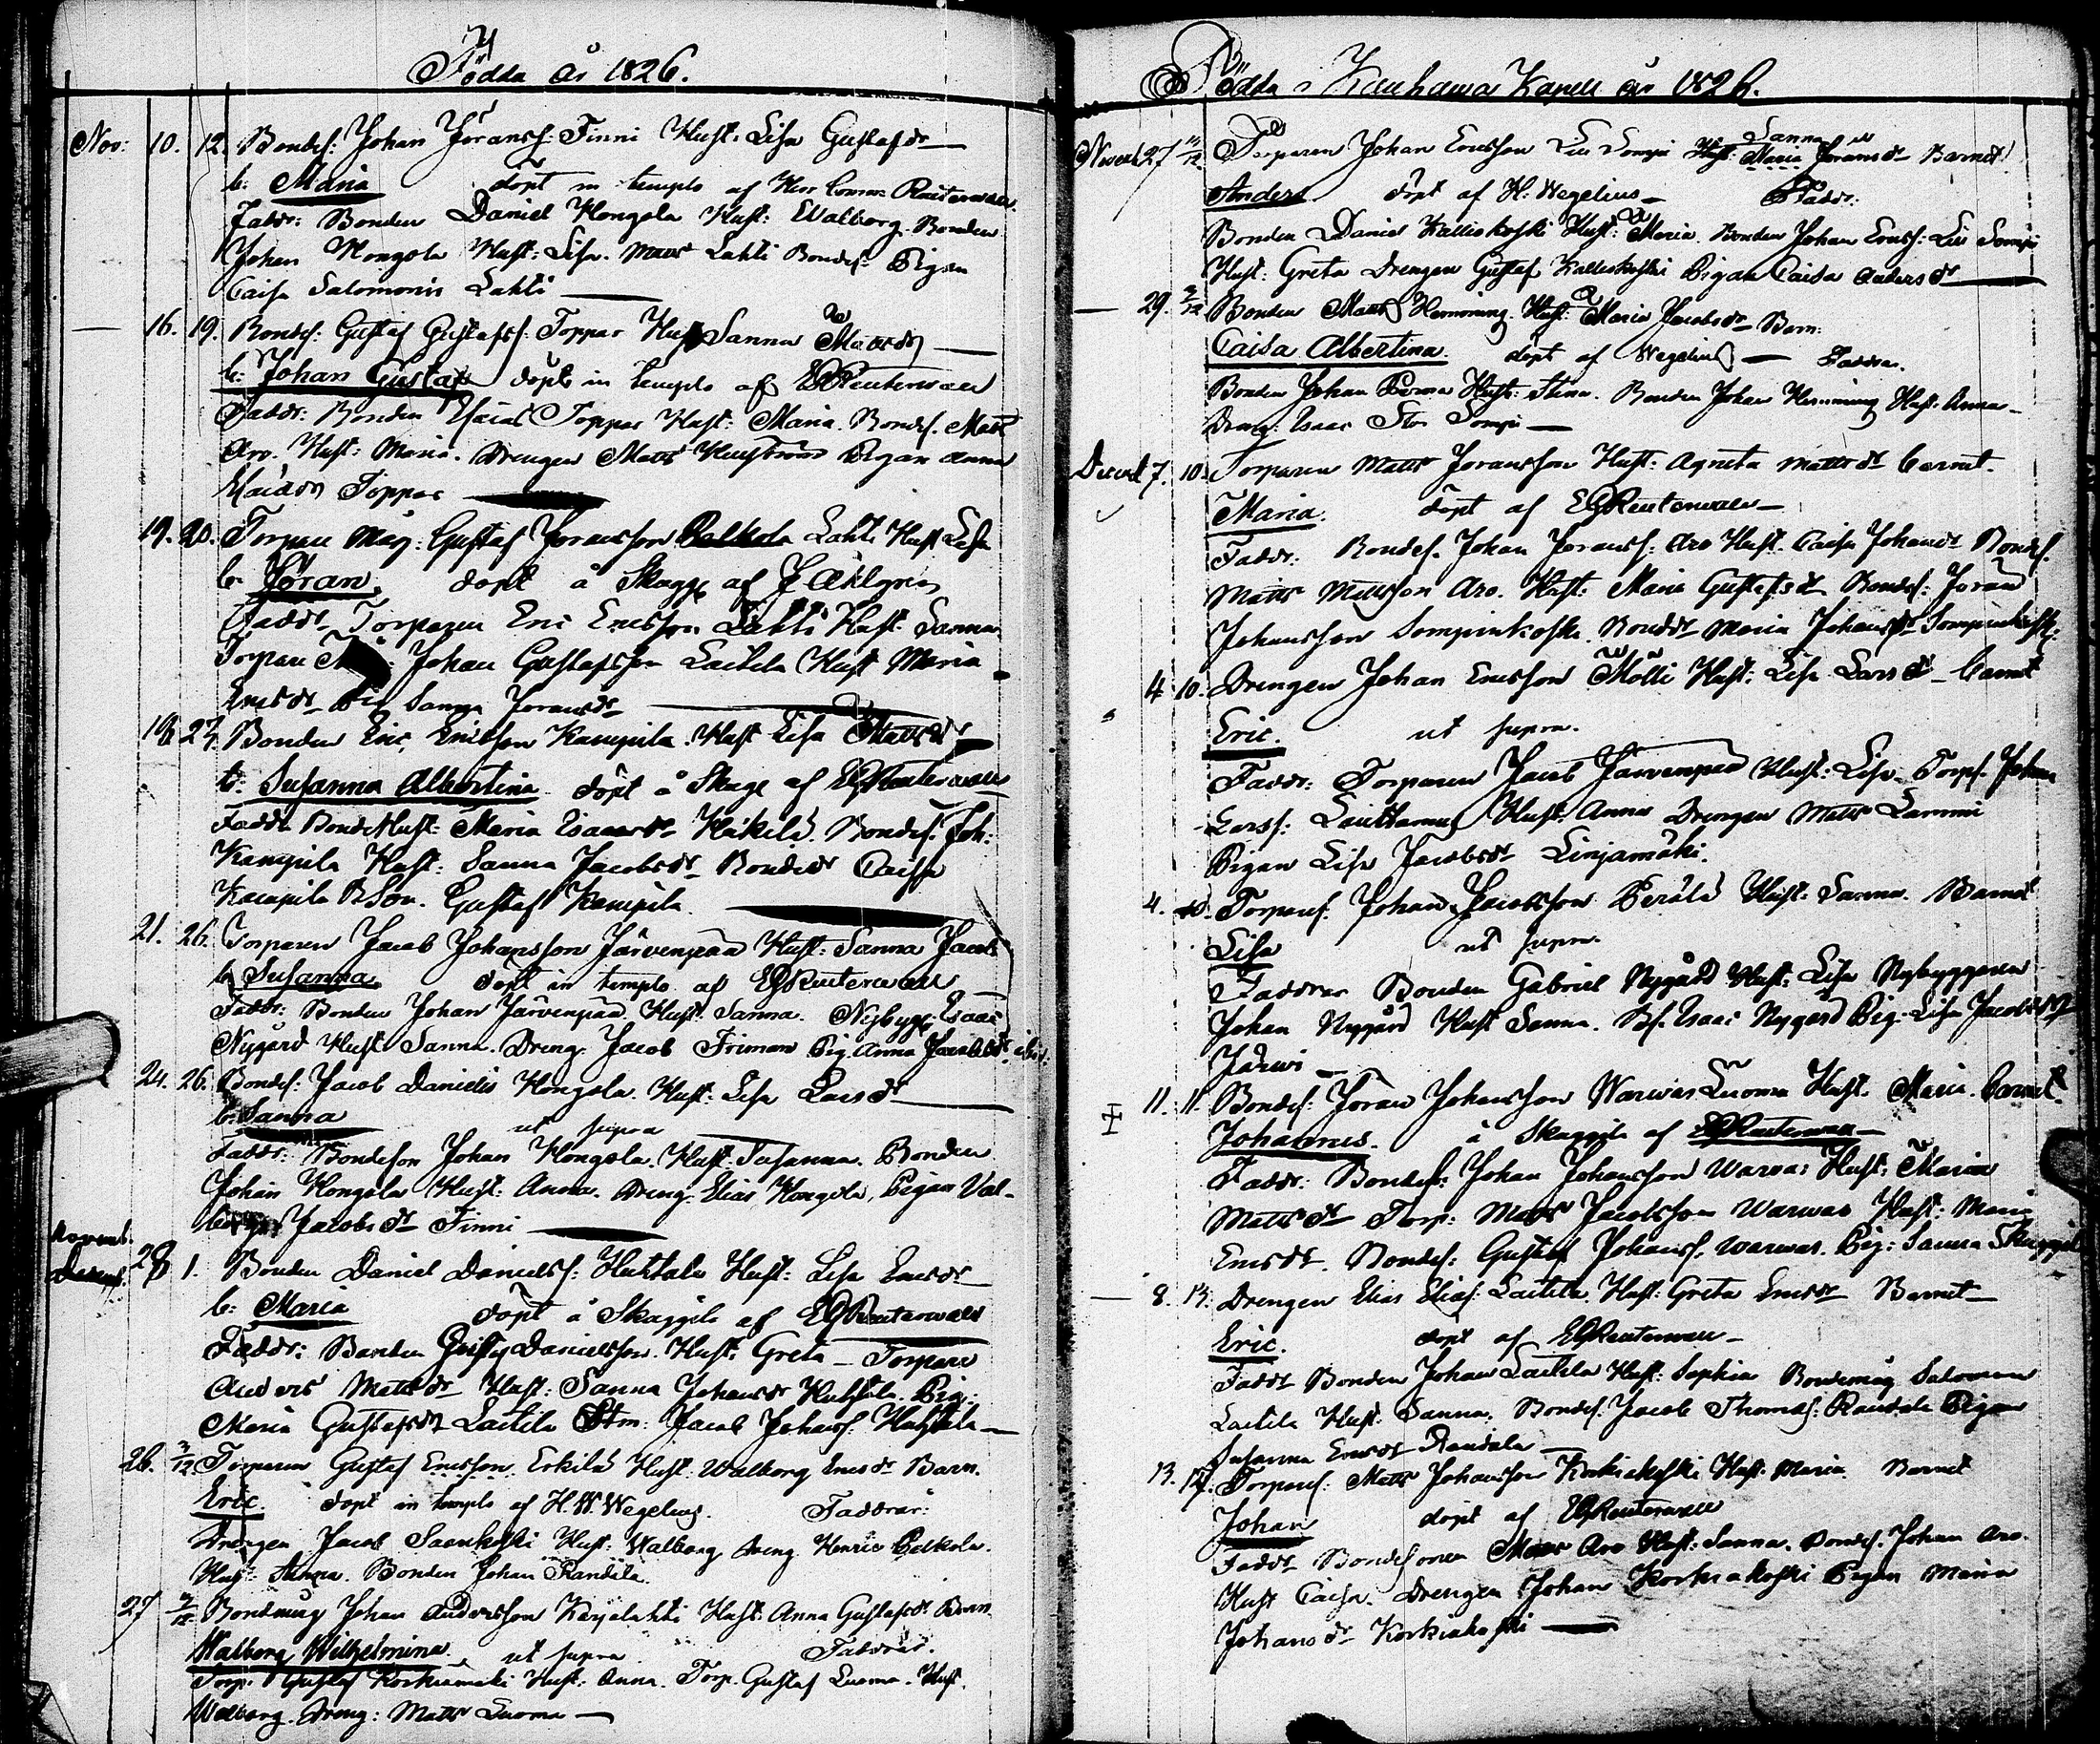 Födda år 1826.
Nov: 10. 12. Bondes: Johan Jöranss: Finni Hust: Lisa Gustafsdr
b: Maria döpt in templo af Herr Reuterwall.
Faddr: Bonden Daniel Hongola Hust: Walborg. Bonden
Johan Hongola Hust: Lisa. Matts Lahti Bondes: Pigan
Caisa Salomonis Lahti
16. 19. Bondes: Gustaf Gustafss: Toppar Hust Sanna
b: Johan Gustaf döpt in templo af EGReuterwall
Faddr: Bonden Esaias Toppar Hust: Maria. Bondes. Matts
Aro. Hust: Maria. Drengen Matts Pigan Anna
Toppar
19. 20. Torpare måg: Gustaf Joransson Lahti Hust Lisa
b. Jöran. döpt å Skagge af J Ahlgren
Faddr. Torparen Eric Ericsson Lahti Hust. Sanna
Torpare Johan Gustafsson Laitila Hust Maria
Ericsdr Pig Sanna Joransdr
18 27. Bonden Eric Ericsson Kampila. Hust Lisa Mattsdr
b: Susanna Albertina döpt å Skage af EGReuterwall
Faddr BondeHust: Maria Isaacsdr Häkilä. Bondes. Joh:
Kampila Hust: Sanna Jacobsdr Bondedr Caisa
Kampila BSon. Gustaf Kampila.
21. 26. Torparen Jacob Johansson Järvenpää Hust: Sanna Jacobs
b Susanna döpt in templo af EGReuterwall
Faddr: Bonden Johan Järvenpää. Hust: Sanna. Nybygg: Isaac
Nygård Hust. Sanna. Dreng. Jacob Friman Pig. Anna Jacobsdr
24. 26. Bondes: Jacob Danielis Hongola. Hust: Lisa Larsdr
b: Sanna ut supra
Faddr: Bondeson Johan Hongola. Hust: Susanna. Bonden
Johan Hongola Hust: Anna. Dreng. Elias Hongola, Pigan Val-
borg Jacobsdr Finni
Novemb.
Decemb. 28 1. Bonden Daniel Danielss: Huhtala Hust: Lisa Ericsdr
b: Maria döpt å Skaggila af EGReuterwall
Faddr: Bonden Danielsson. Hust. Greta - Torpare
Anders Matts Hust: Sanna Johansdr Huhtala. Pig:
Maria Gustafsdr Laitila Jacob Johanss. Huhtala
26. 3/12 Torparen Gustaf Ericsson Erkilä Hust. Walborg Ericsdr Barn.
Eric. döpt in templo af H.W.Wegelius. Faddrar:
Drengen Jacob Saarikoski Hust. Walborg dreng Henric Pelkola.
Hust. Anna. Bonden Johan Randila.
27 3/12 Bondmåg Johan Andersson Karjalahti Hust: Anna Gustafsdr Barn
Walborg Wilhelmina. ut supra. Faddrar.
Torp: Gustaf Korkiamäki Hust: Anna. Torp. Gustaf Luoma. Hust.
Walborg. Dreng: Matts Luoma
Födda i Kauhava Kapell år 1826.
Novemb 27 Torparen Johan Ericsson Liu Sompi Hust: Maria Sanna Joransdr Barnet
Anders döpt af H. Wegelius Faddr:
Bonden Daniel Kalliokoski Hust: Maria. Bonden Johan Ericss: Liu Sompi
Hust: Greta Drengen Gustaf Kalliokoski Pigan Caisa Andersdr
29. 3/12 Bonden Matts Hemming. Hust: Maria Jacobsdr Barn:
Caisa Albertina. döpt af Wegelius Faddra.
Bonden Johan Hust: Stina. Bonden Johan Hemming Hust. Anna
Dreng: Isaac Sompi
Decemb 7. 10. Torparen Matts Joransson Hust: Agneta Mattsdr barnet.
Maria. döpt af EGReuterwall
Faddr: Bondes. Johan Joranss: Aro Hust. Caisa Johansdr Bondes.
Matts Mattsson Aro. Hust: Maria Gustafsdr Bondes: Joran
Johansson Sompinkoski Bondedr Maria Johansdr Sompinkoski:
4 10. Drengen Johan Ericsson Mölli Hust: Lisa Larsdr barnet
Eric. ut supra.
Faddr: Torparen Jacob Järvenpää Hust: Lisa Torps. Johan
Larss: Hust. Anna Drengen Matts Lammi
Pigan Lisa Jacobsdr Linjamäki.
4. 10. Torpares. Johan Jacobsson Perälä Hust: Sanna. Barnet
Lisa ut supra.
Faddrar Bonden Gabriel Nygård Hust: Lisa Nybyggaren
Johan Nygård Hust Sanna. Bs. Isaac Nygård Pig. Lisa Jacobsdr
Järvi
11. 11. Bondes: Jöran Johansson Warwas Luoma Hust. Maria. barnet.
Johannes. å Skaggila af EGReuterwall
Faddr: Bondes: Johan Johansson Warvas Hust: Maria
Mattsdr Torp: Matts Jacobsson Warwas Hust: Maria
Ericsdr. Bondes: Gustaf Johanss. Warwas. Pig: Sanna
8. 13. Drengen Elias Eliass: Laitila. Hust: Greta Ericsdr Barnet
Eric. döpt af EGReuterwall
Faddr Bonden Johan Laitila Hust: Sophia Bondemåg Salomon
Laitila Hust. Sanna. Bondes. Jacob Thomas: Randala Pigan
Susanna Ericsdr Randala
13. 17. Torpares: Matts Johansson Korkiakoski Hust: Maria. Barnet
Johan döpt af EGReuterwall
Faddr Bondesonen Matts Aro Hust: Sanna. Bondes. Johan Aro.
Hust Caisa. Drengen Johan Korkiakoski Pigan Maria
Johansdr Korkiakoski